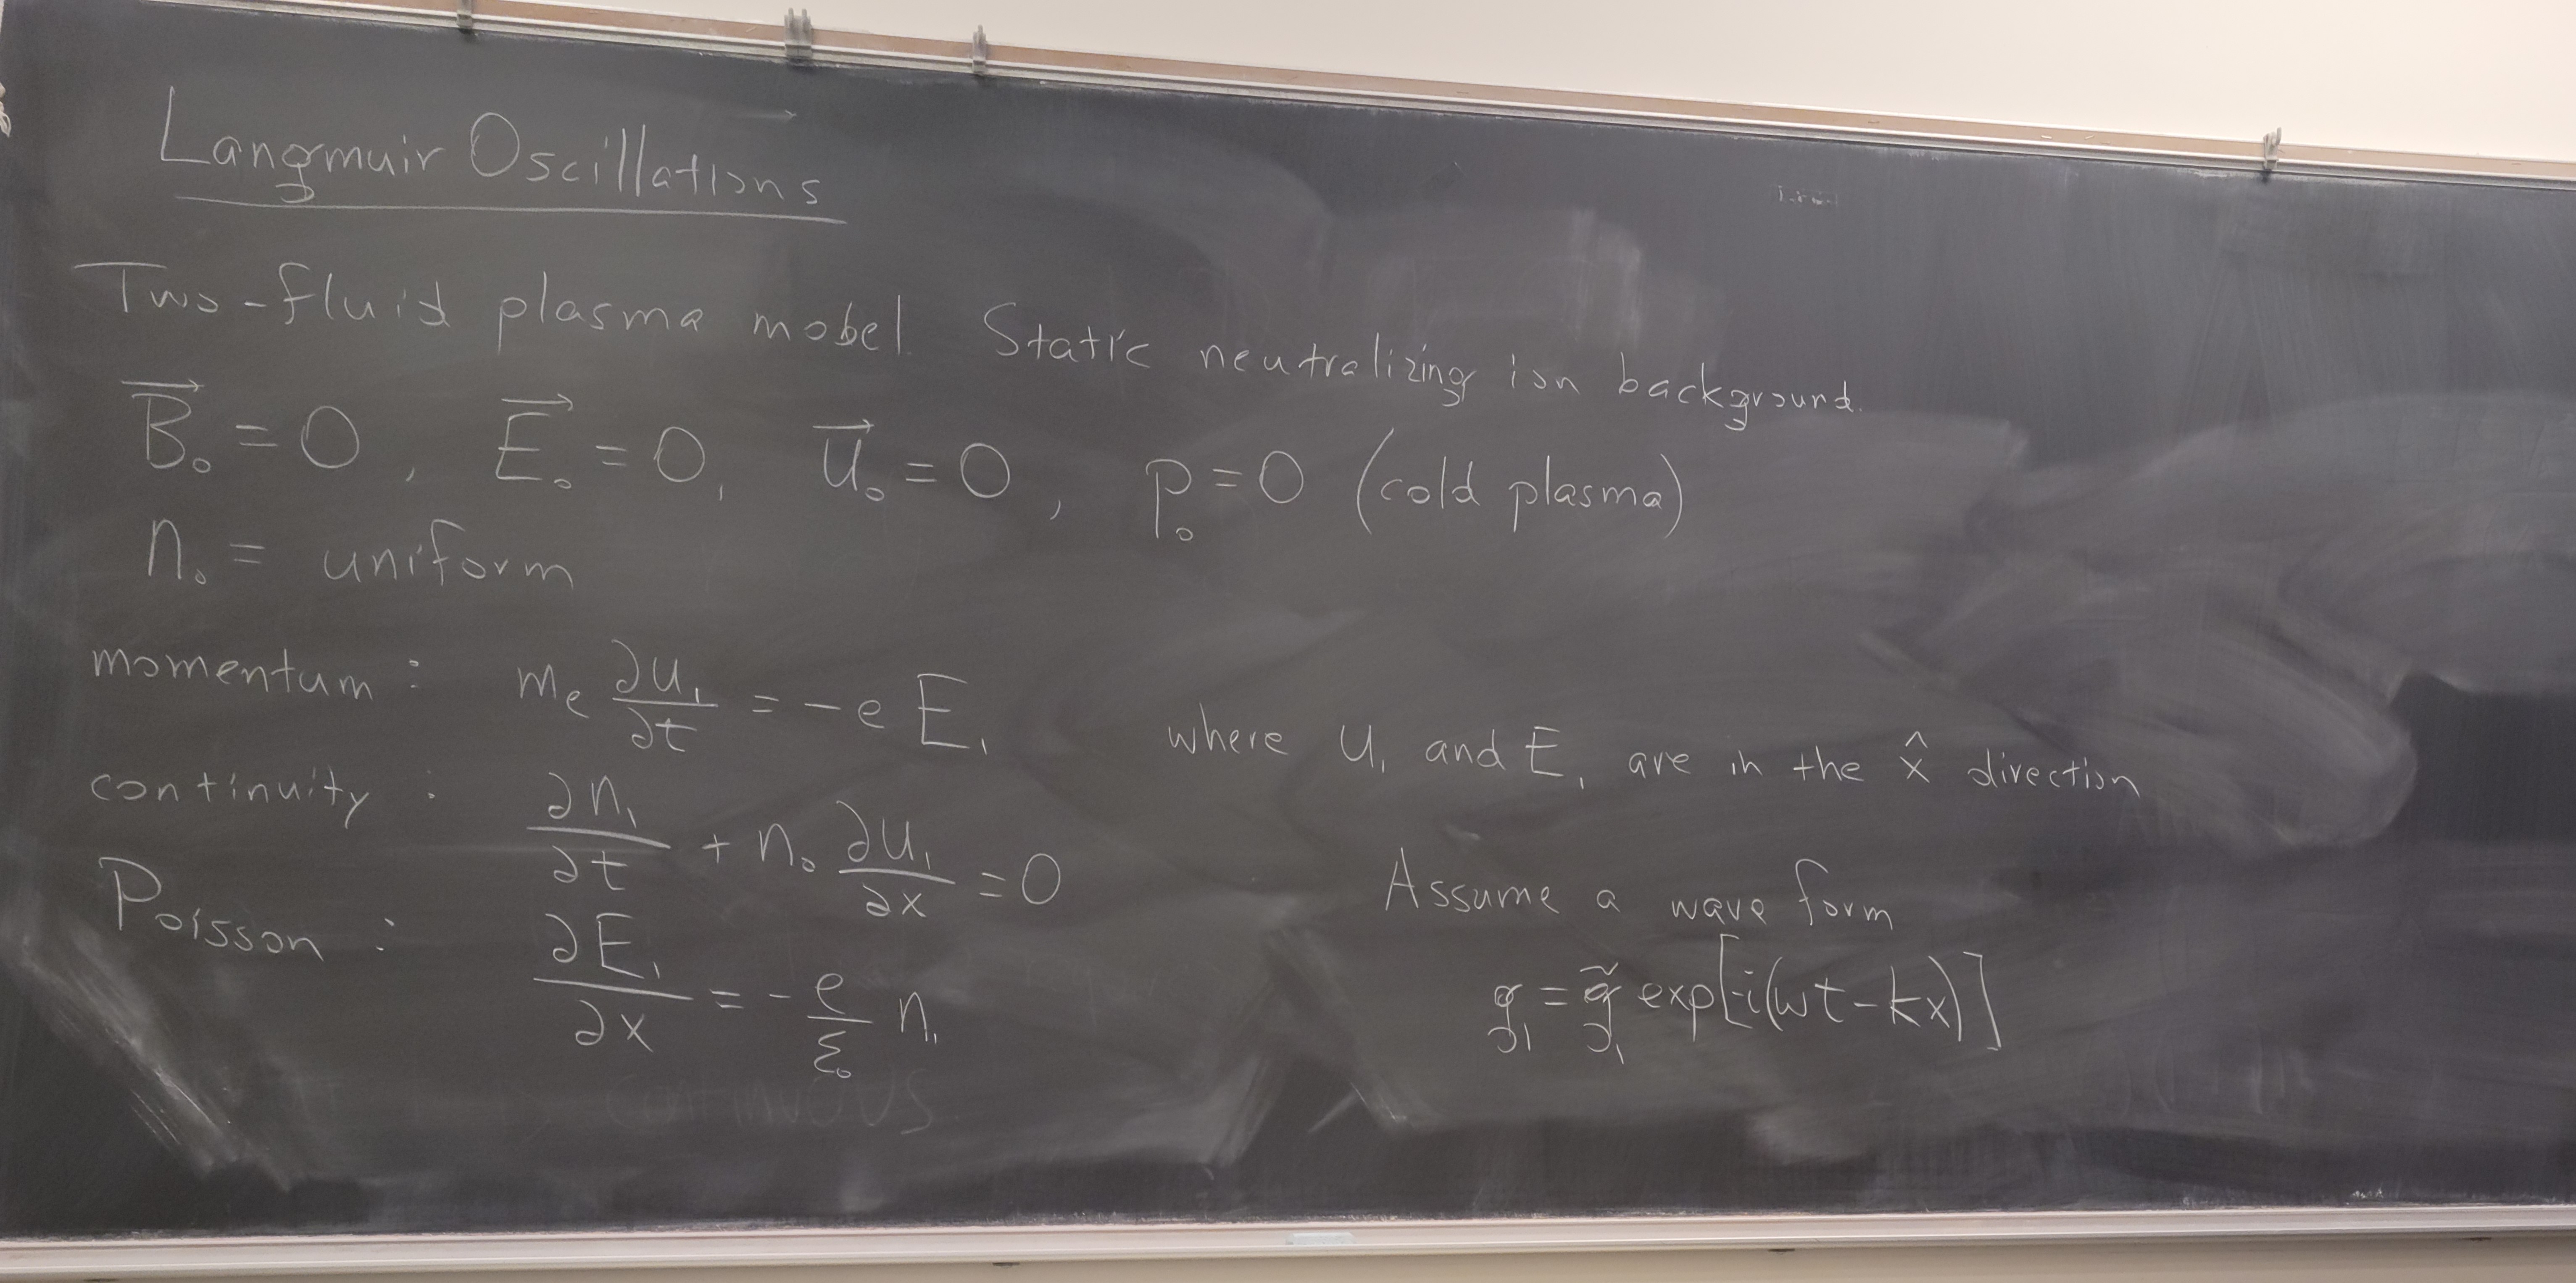 Langmuir Oscillations
Two-fluid plasma model. Static neutralizing ion background.
B⃗₀ = 0, E⃗₀ = 0, u⃗₀ = 0, p₀ = 0 (cold plasma)
n₀ = uniform
momentum: mₑ ∂u₁/∂t = -e E₁ where u₁ and E₁ are in the x̂ direction
continuity: ∂n₁/∂t + n₀ ∂u₁/∂x = 0
Poisson: ∂E₁/∂x = - e/ε₀ n₁
Assume a wave form
g₁ = g̃₁ exp[-i(ωt-kx)]
continuous